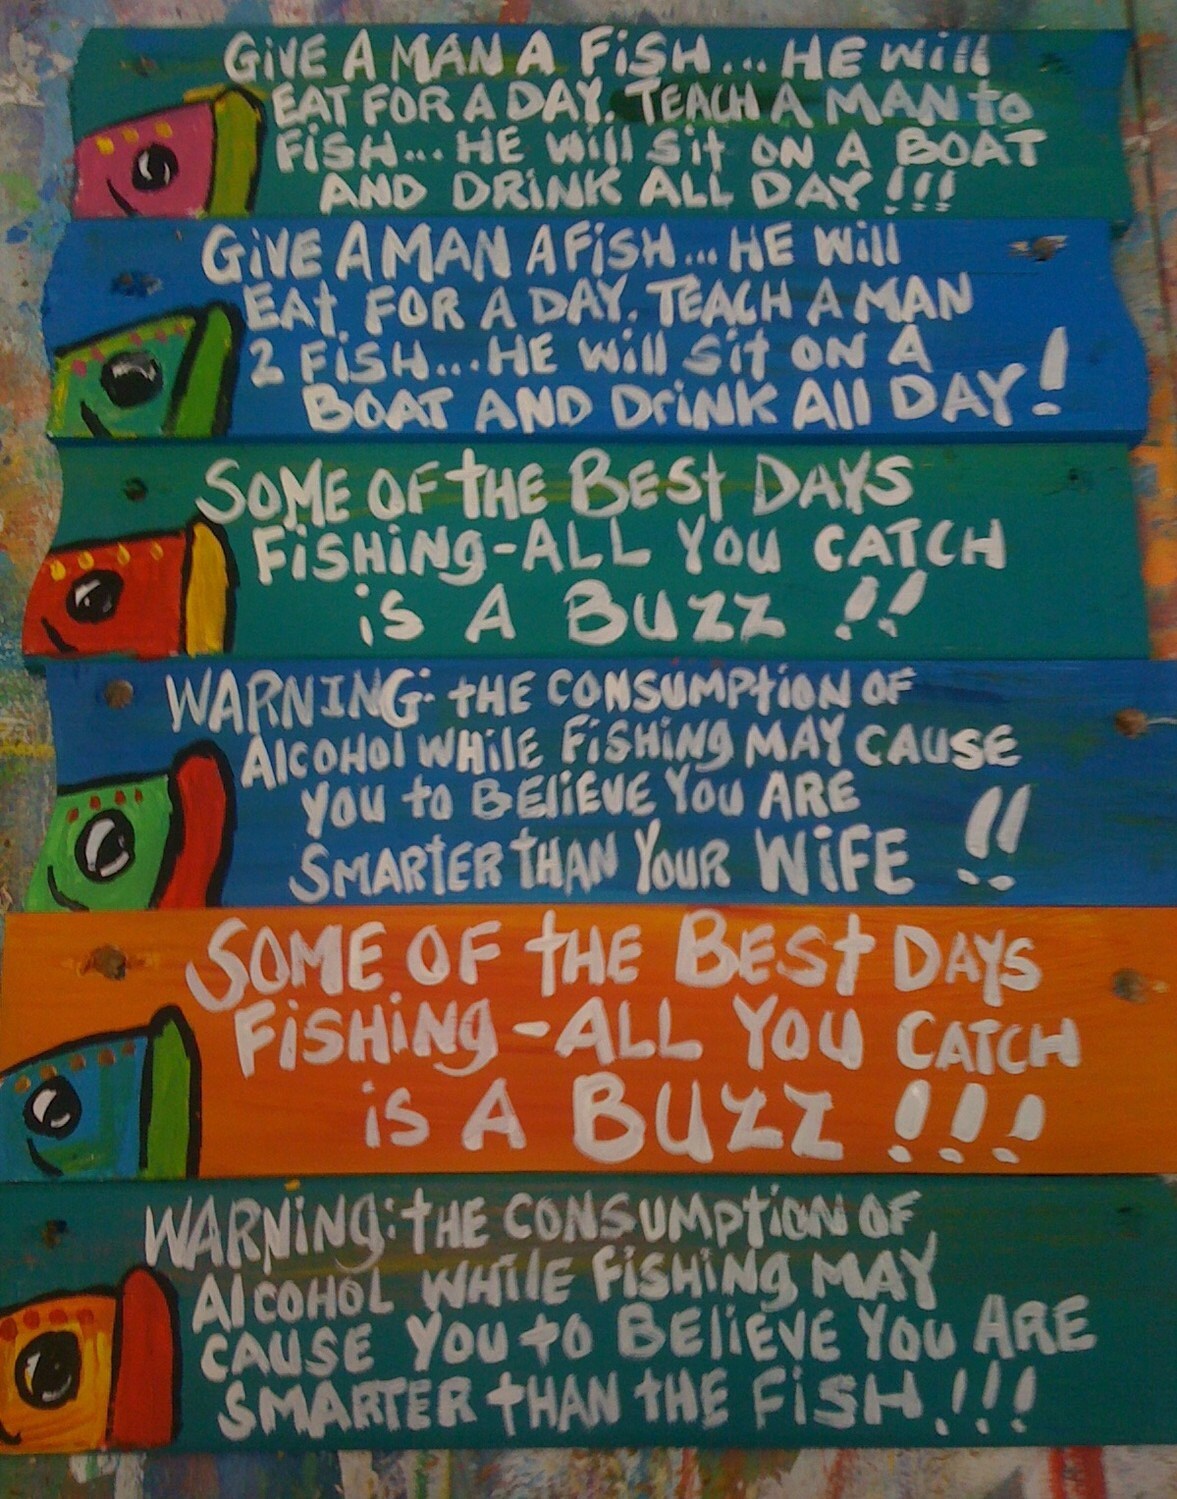 GiVE A MAN A FiSH... HE will
EAT FOR A DAY. TEACH A MAN to
FiSH... HE will sit ON A BOAT
AND DRiNK ALL DAY!!!
GiVE A MAN A FiSH... HE Will
EAt FOR A DAY. TEACH A MAN
2 FiSH... HE will sit ON A
BOAT AND DriNK All DAY!
SOME OF tHE BESt DAYS
FiSHiNg-ALL YOU CATCH
iS A BUZZ!!
WARNING: tHE CONSUMPtiON OF
AlCOHOl WHilE FiSHiNg MAY CAUSE
YOU to BEliEVE YOU ARE
SMARtER tHAN YOUR WiFE!!
SOME OF tHE BESt DAYS
FiSHiNg-ALL YOU CATCH
iS A BUZZ!!!
WARNiNg: tHE CONSUMptiON OF
AlCOHOL WHilE FiSHiNg MAY
CAUSE YOU tO BEliEVE YOU ARE
SMARTER tHAN tHE FiSH!!!